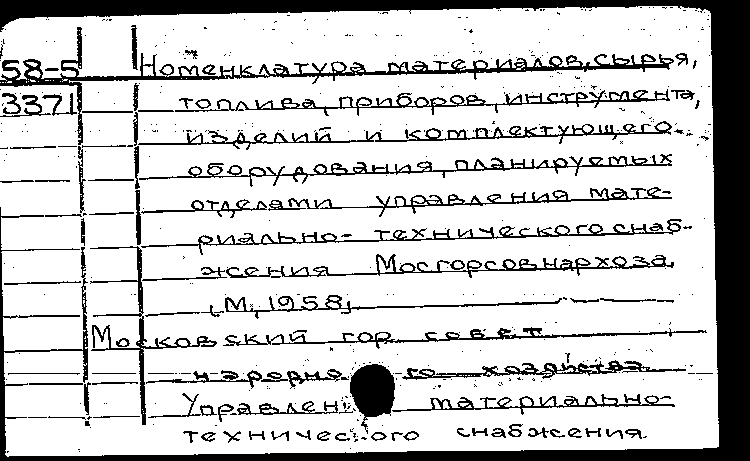 58-5 Номенклатура материалов, сырья,
3371 топлива, приборов, инструмента,
изделий и комплектующего
оборудования, планируемых
отделами управления мате-
риально-технического снаб-
жения Мосгорсовнархоза.
[М, 1958]
Московский гор. совет
народного хозяйства.
Управлен материально-
технического снабжения